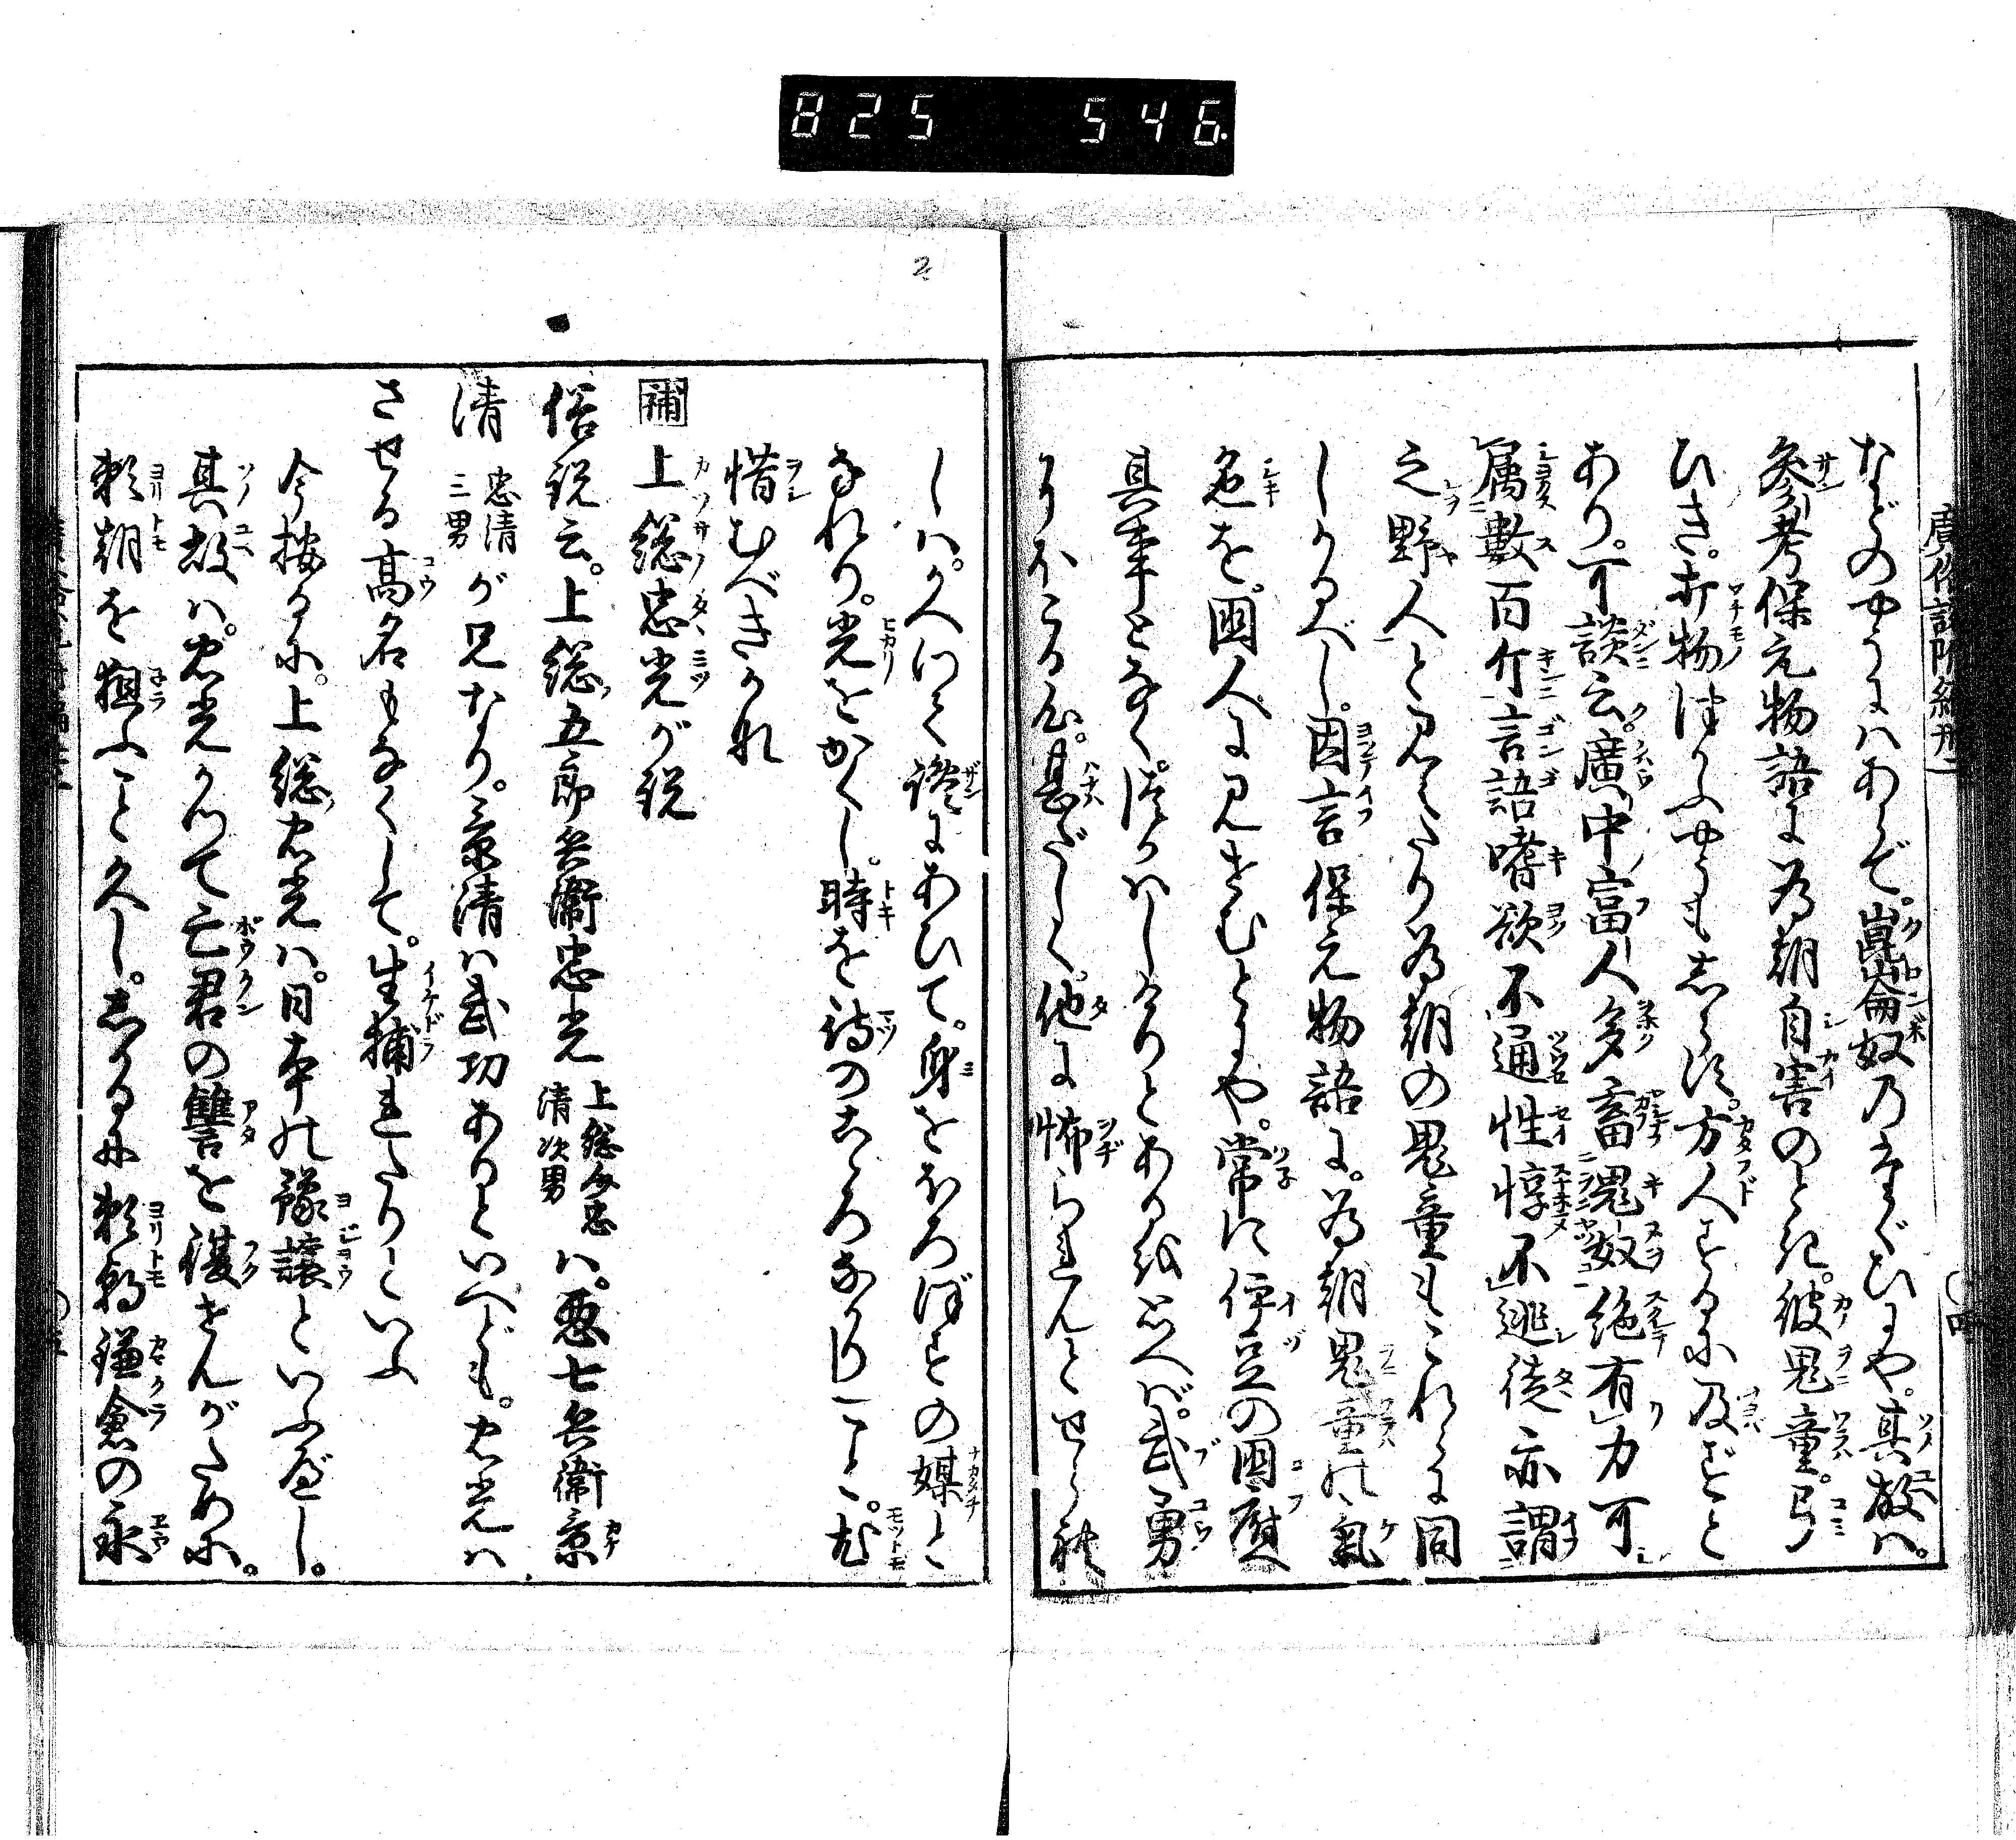 825 546
などのやうにはあらず。崑崙奴乃たぐひにや。其故は。
参考保元物語に為朝自害のとき。彼鬼童。弓
ひき。打物つかふやうもしらず。方人するに及ずと
あり。可談云。廣中富人多畜鬼奴絶有力可
属數百斤言語嗜欲不通性惇不逃徒亦謂
之野人と見えたり為朝の鬼童もこれらに同
しかるべし。因言保元物語に。為朝鬼童の氣
色を。國人に見せむとにや。常に伊豆の國府へ
具事となく。つかはしけりとあるを思へば。武勇
にほこる心。甚だしく。他に怖られんとせられ
しは。かへつて讒にあひて。身をほろぼすの媒と
なれり。光をかくし。時を待のこゝろなかりしこと。尤
惜むべきかな
補 上総忠光が説
俗説云。上総五郎兵衞忠光 上総介忠清次男 は。悪七兵衞景
清 忠清三男 が兄なり。景清は武功ありといへども。忠光は
させる高名もなくして。生捕れたりといふ
今按るに。上総忠光は。日本の豫讓といふべし。
其故は。忠光かつて亡君の讐を復せんがために。
頼朝を狙ふこと久し。しかるに頼朝鎌倉の永